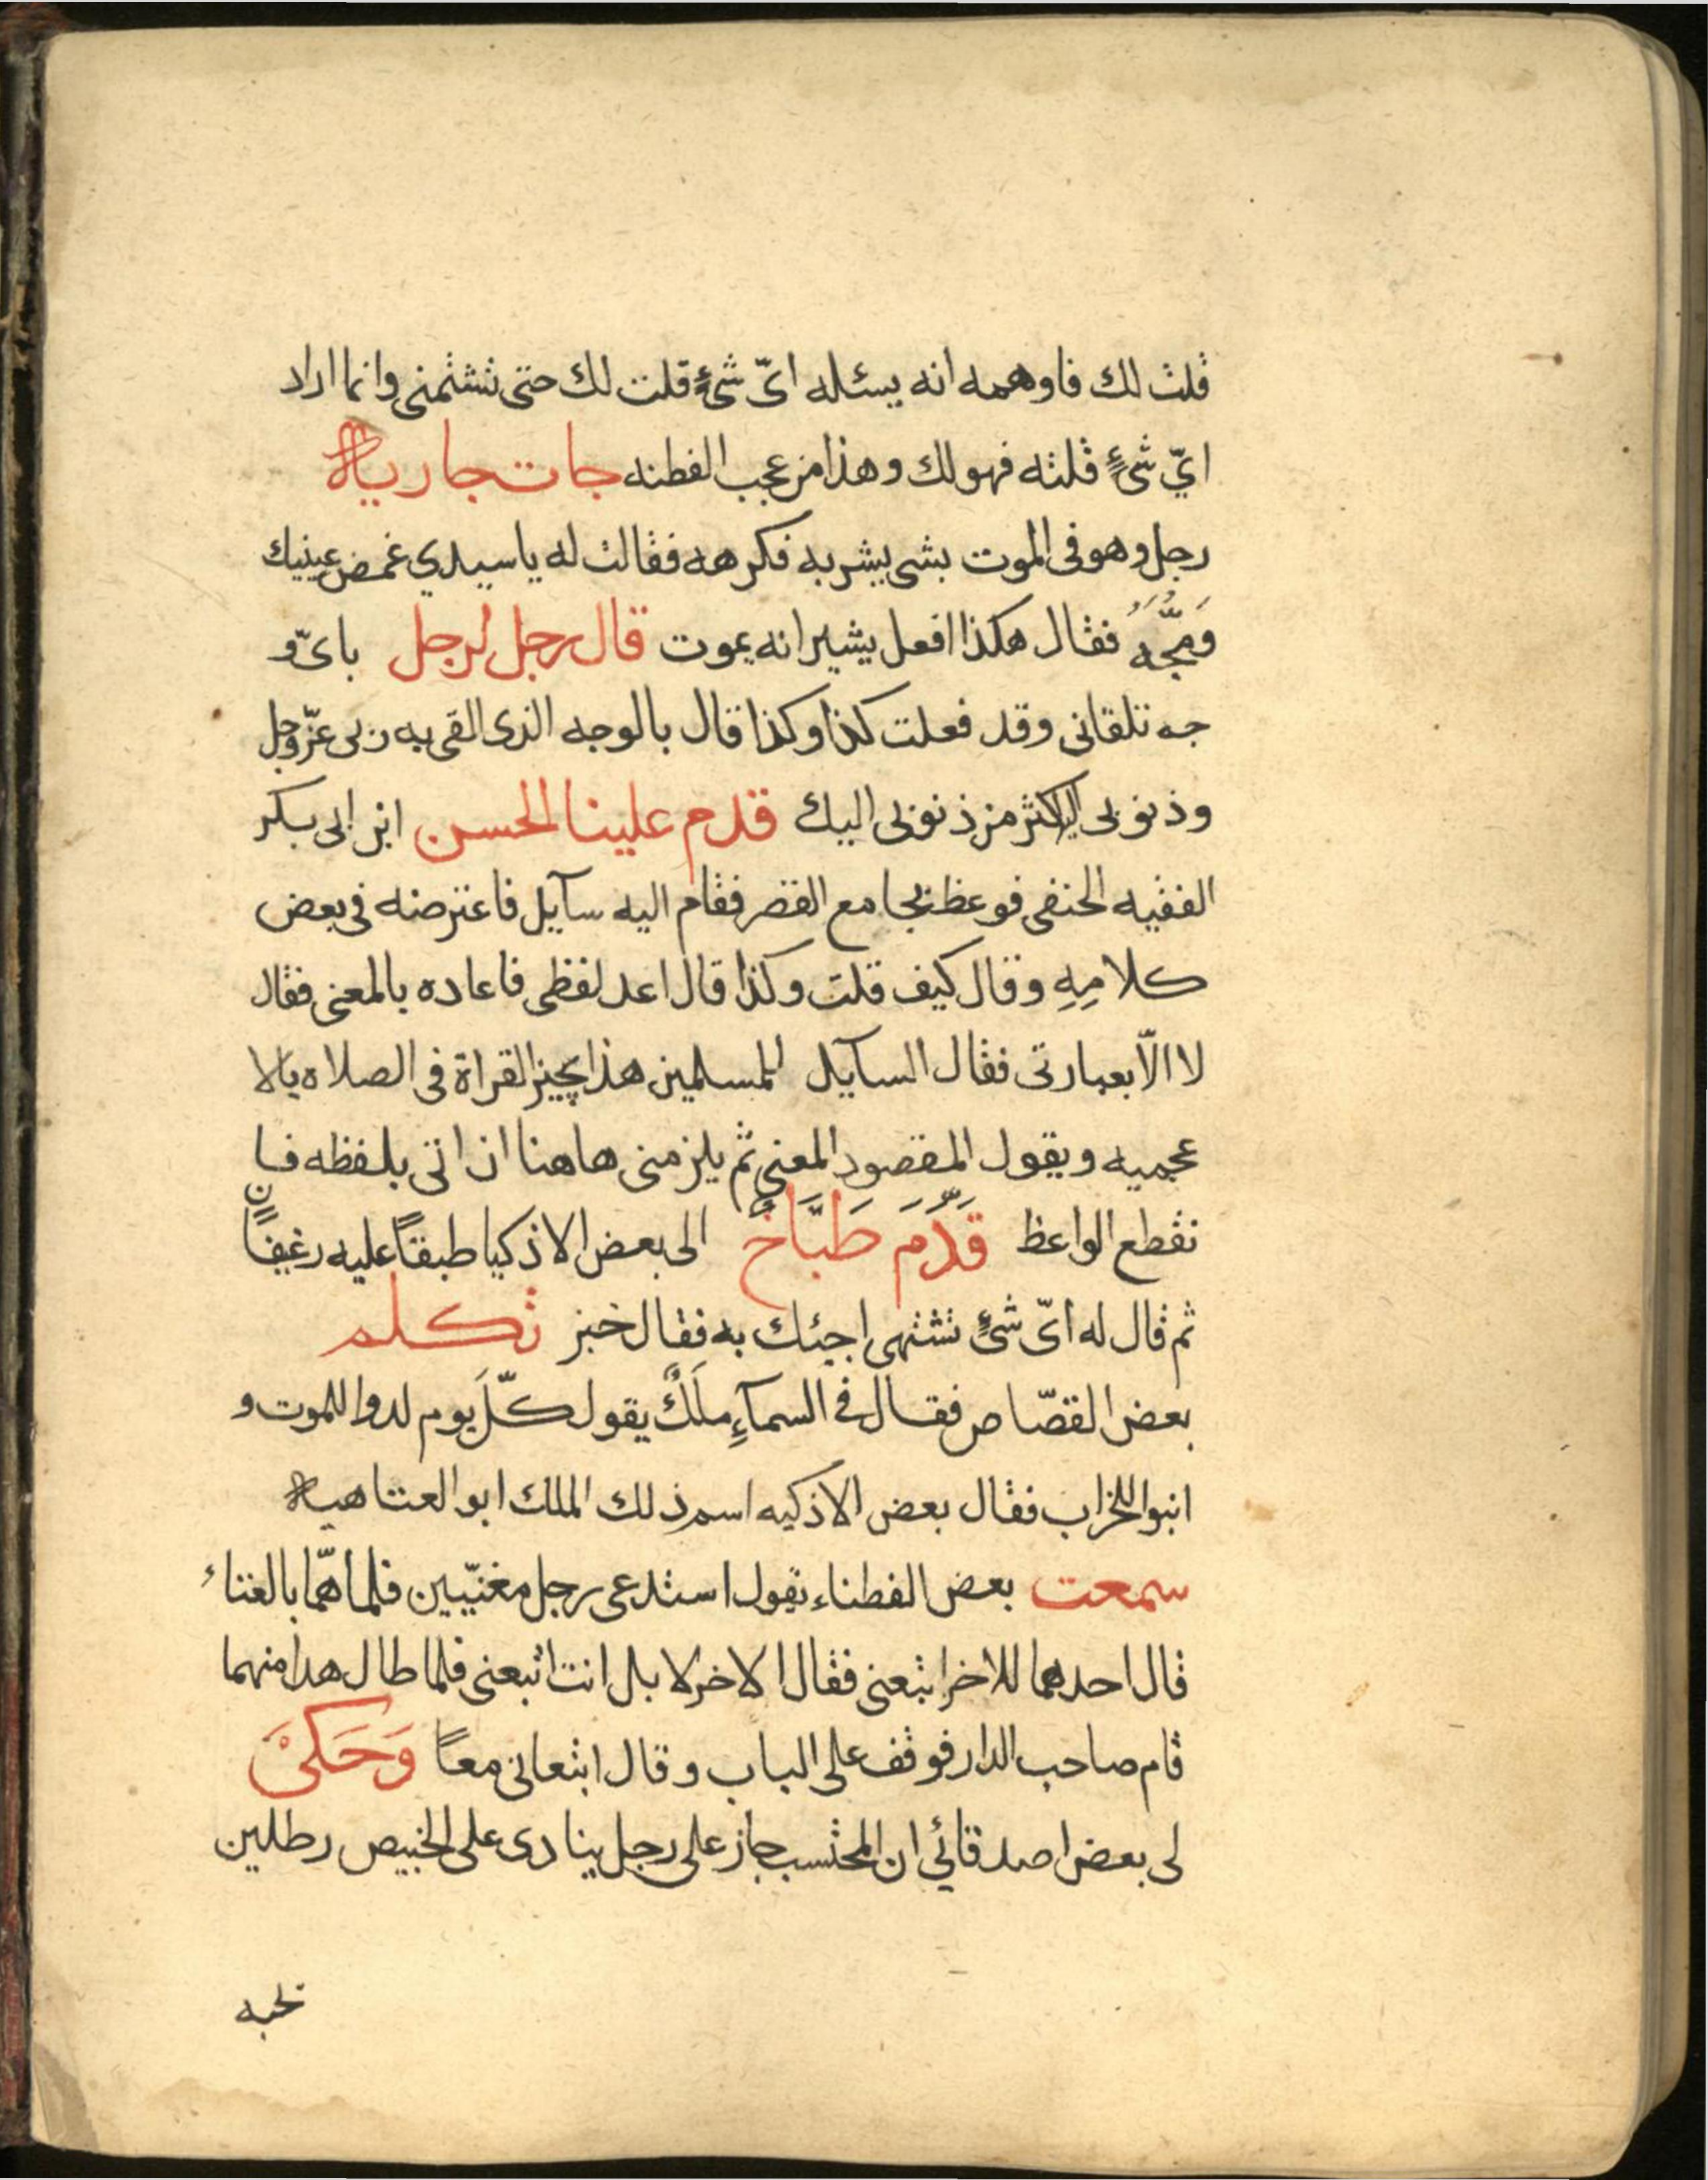 قلت لك فاوهمه انه يسئله ايّ شئٍ قلت لك حتى تشتمني وانما اراد
ايّ شئٍ قلته فهو لك وهذا من عجب الفطنه جات جارية
رجل وهو في الموت بشي يشربه فكرهه فقالت له يا سيدي غمض عينيك
وَمُجَّهُ فقال هكذا افعل يشير انه يموت قال رجل لرجل باىّ و
جه تلقاني وقد فعلت كذا وكذا قال بالوجه الذي القى به ربي عزّ وجل
وذنوبي اليه اكثر من ذنوبي اليك قدم علينا الحسن ابن ابي بكر
الفقيه الحنفي فوعظ بجامع القصر فقام اليه سآيل فاعترضه في بعض
كلامِهِ وقال كيف قلت وكذا قال اعد لفظي فاعاده بالمعنى فقال
لا الّا بعبارتي فقال السآيل للمسلمين هذا يجيز القراة في الصلاه بالا
عجميه ويقول المقصود المعنى ثم يلزمني هاهنا ان اتي بلفظه فا
نقطع الواعظ قَدَّمَ طَبَّاخٌ الى بعض الاذكيا طبقاً عليه رغيفاًن
ثم قال له ايّ شئٍ تشتهي اجيئك به فقال خبز تكلم
بعض القصّاص فقال في السمآءِ ملَكٌ يقول كلَّ يوم لدوا للموت و
ابنوا للخراب فقال بعض الاذكيه اسم ذلك الملك ابو العتاهية
سمعت بعض الفطناء يقول استدعى رجل مغنّيين فلما همّا بالغناء
قال احدهما للاخر اتبعني فقال الاخر لا بل انت اتبعني فلما طال هذا منهما
قام صاحب الدار فوقف على الباب وقال اتبعاني معاً وَحَكىَ
لي بعض اصدقائي ان المحتسب جاز على رجل ينادي على الخبيص رطلين
بحبه